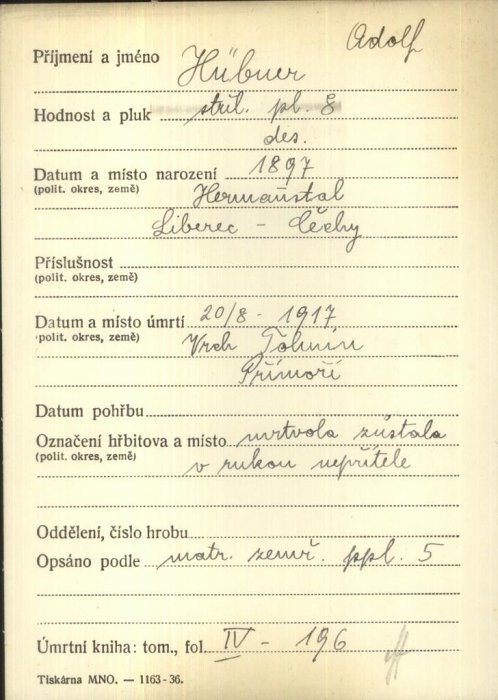 Adolf
Příjmení a jméno Hübner
Hodnost a pluk stříl. pl. 8
des.
Datum a místo narození 1897
(polit. okres, země) Hermanstal
Liberec - Čechy
Příslušnost
(polit. okres, země)
Datum a místo úmrtí 20/8 - 1917
(polit. okres, země) Vrch Tolmin
Přímoří
Datum pohřbu
Označení hřbitova a místo mrtvola zůstala
(polit. okres, země) v rukou nepřítele
Oddělení, číslo hrobu
Opsáno podle matr. zemř. ppl. 5
Úmrtní kniha: tom., fol. IV - 196
Tiskárna MNO. — 1163-36.